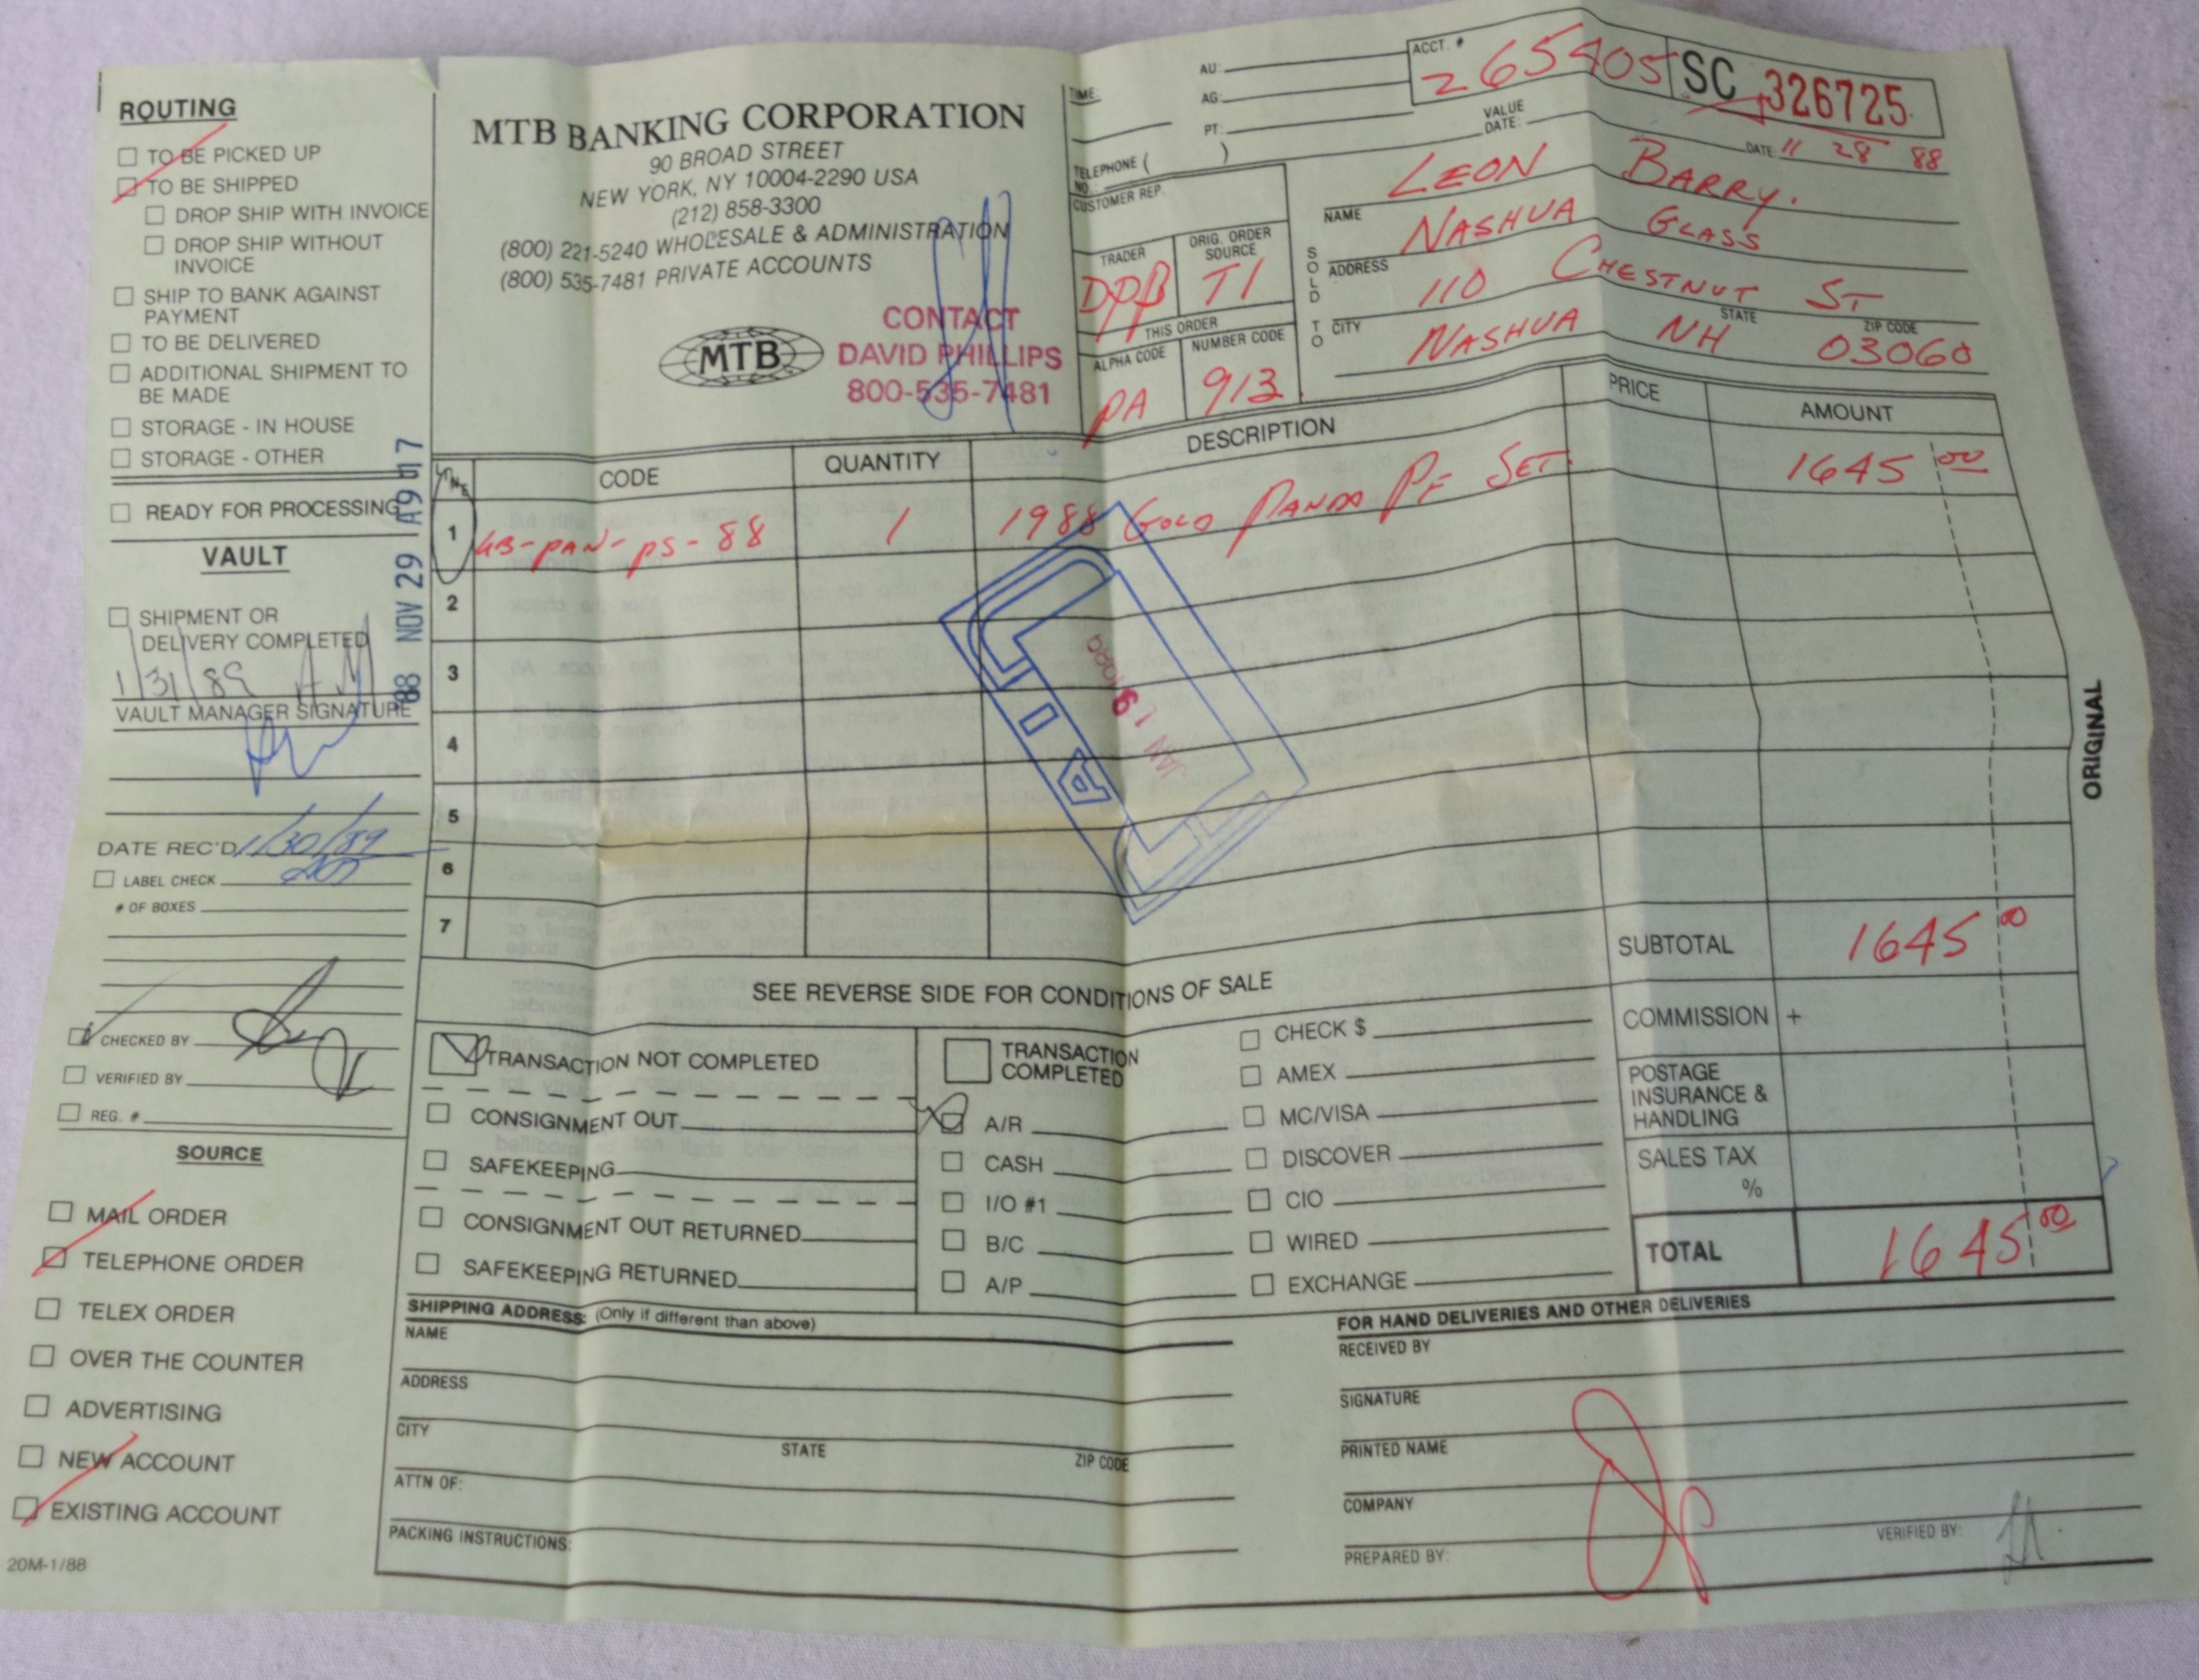 ROUTING
TO BE PICKED UP
TO BE SHIPPED
DROP SHIP WITH INVOICE
DROP SHIP WITHOUT
INVOICE
SHIP TO BANK AGAINST
PAYMENT
TO BE DELIVERED
ADDITIONAL SHIPMENT TO
BE MADE
STORAGE - IN HOUSE
STORAGE - OTHER
READY FOR PROCESSING
VAULT
SHIPMENT OR
DELIVERY COMPLETED
1/31/89 AM
VAULT MANAGER SIGNATURE
88 NOV 29 A9:17
DATE REC'D 1/30/89
LABEL CHECK
# OF BOXES
CHECKED BY
VERIFIED BY
REG. #
SOURCE
MAIL ORDER
TELEPHONE ORDER
TELEX ORDER
OVER THE COUNTER
ADVERTISING
NEW ACCOUNT
EXISTING ACCOUNT
20M-1/88
MTB BANKING CORPORATION
90 BROAD STREET
NEW YORK, NY 10004-2290 USA
(212) 858-3300
(800) 221-5240 WHOLESALE & ADMINISTRATION
(800) 535-7481 PRIVATE ACCOUNTS
MTB
CONTACT
DAVID PHILLIPS
800-535-7481
TIME:
AU:
AG:
PT:
TELEPHONE ( )
NO.:
CUSTOMER REP.
TRADER
DPB
ORIG. ORDER
SOURCE
T1
THIS ORDER
ALPHA CODE
PA
NUMBER CODE
913
ACCT. #
265405
SC 326725
VALUE
DATE:
DATE 11 28 88
SOLD TO
NAME LEON BARRY.
NASHUA GLASS
ADDRESS 110 CHESTNUT ST
CITY NASHUA STATE NH ZIP CODE 03060
LINE CODE QUANTITY DESCRIPTION PRICE AMOUNT
1 GB-PAN-PS-88 1 1988 GOLD PANDA PF SET 1645 00
2
3
4
5
6
7
JAN 19 1989
SUBTOTAL 1645 00
COMMISSION +
POSTAGE
INSURANCE &
HANDLING
SALES TAX
%
TOTAL 1645 00
SEE REVERSE SIDE FOR CONDITIONS OF SALE
TRANSACTION NOT COMPLETED
CONSIGNMENT OUT
SAFEKEEPING
CONSIGNMENT OUT RETURNED
SAFEKEEPING RETURNED
TRANSACTION
COMPLETED
A/R
CASH
I/O #1
B/C
A/P
CHECK $
AMEX
MC/VISA
DISCOVER
CIO
WIRED
EXCHANGE
SHIPPING ADDRESS: (Only if different than above)
NAME
ADDRESS
CITY STATE ZIP CODE
ATTN OF:
PACKING INSTRUCTIONS:
FOR HAND DELIVERIES AND OTHER DELIVERIES
RECEIVED BY
SIGNATURE
PRINTED NAME
COMPANY
PREPARED BY:
VERIFIED BY:
ORIGINAL